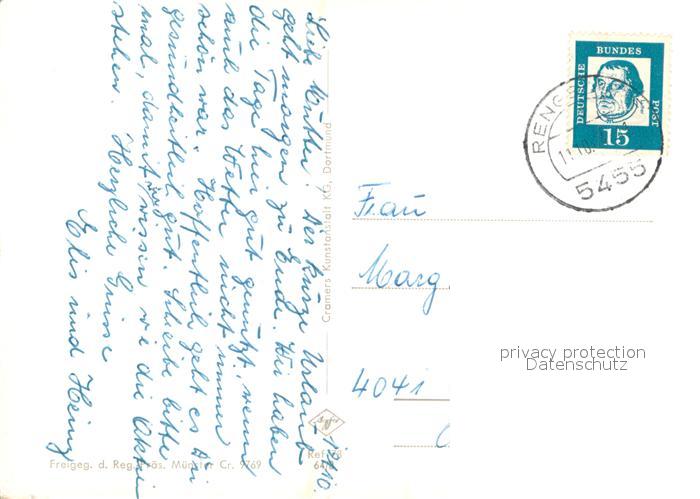 11.10.
Liebe Mutter! Der kurze Urlaub
geht morgen zu Ende. Wir haben
die Tage hier gut genützt, wenn
auch das Wetter nicht immer
schön war. Hoffentlich geht es Dir
gesundheitlich gut. Schreibe bitte
mal, damit wir wissen wie die Aktien
stehen. Herzliche Grüsse
Elis und Heinz
Cramers Kunstanstalt KG, Dortmund
Freigeg. d. Reg. Präs. Münster Cr. 9769
Ref. 78
DEUTSCHE BUNDES POST
15
RENGS
11.10.
5455
Frau
Marg
4041
privacy protection
Datenschutz